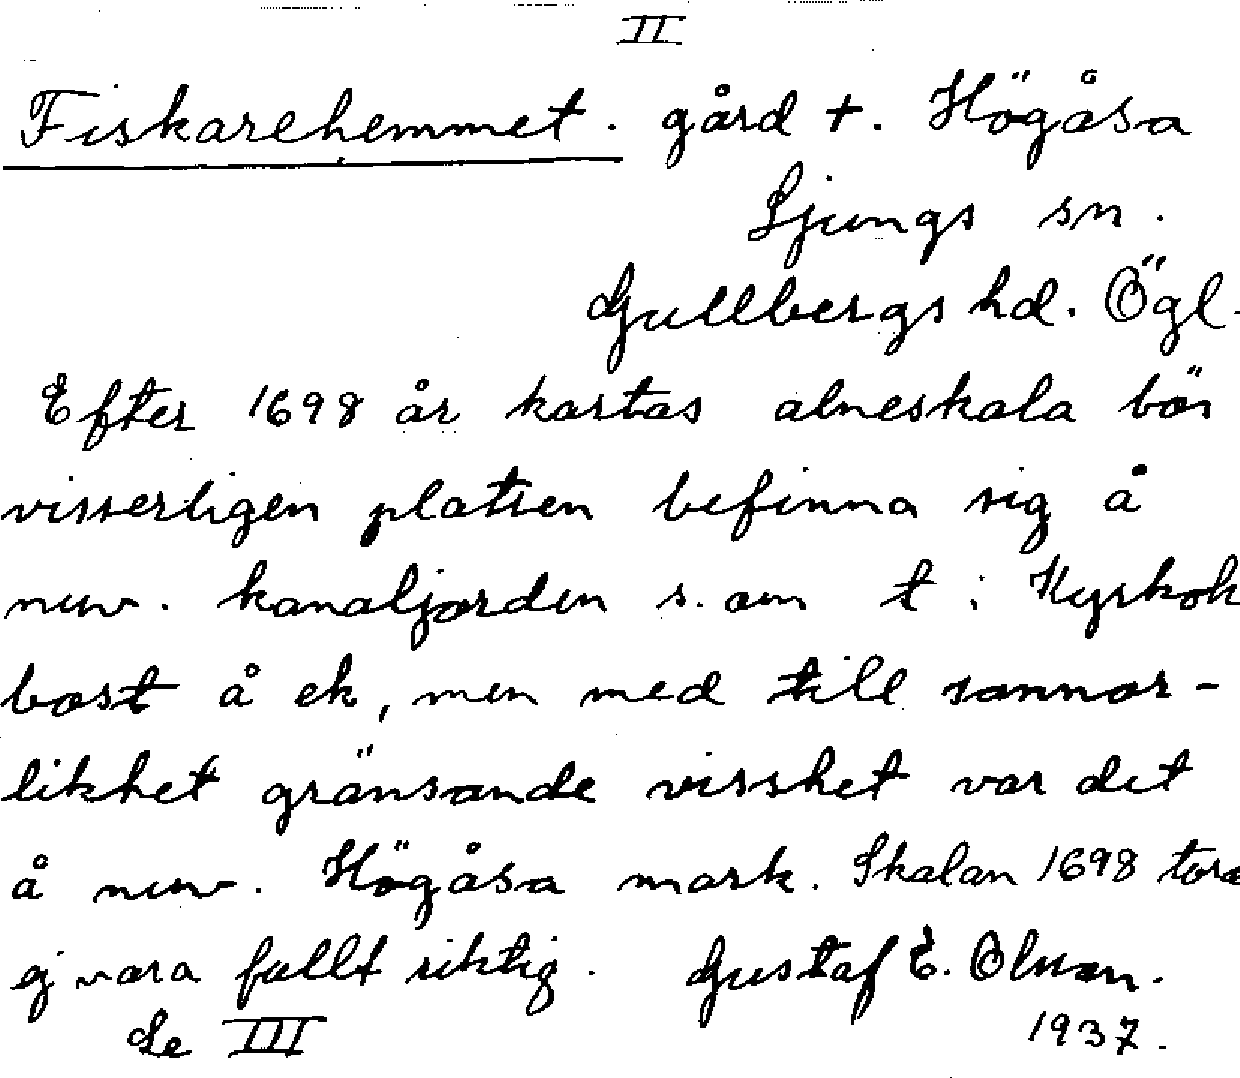 II
Fiskarehemmet. gård †. Högåsa
Ljungs sn.
Gullbergs hd. Ögl.
Efter 1698 år kartas alneskala bör
visserligen platsen befinna sig å
nuv. kanaljorden s. om t i Kyrkok
bost å ek, men med till sannor-
likhet gränsande visshet var det
å nuv. Högåsa mark. Skalan 1698 tord
ej vara fullt riktig. Gustaf E. Olsson.
Se III 1937.